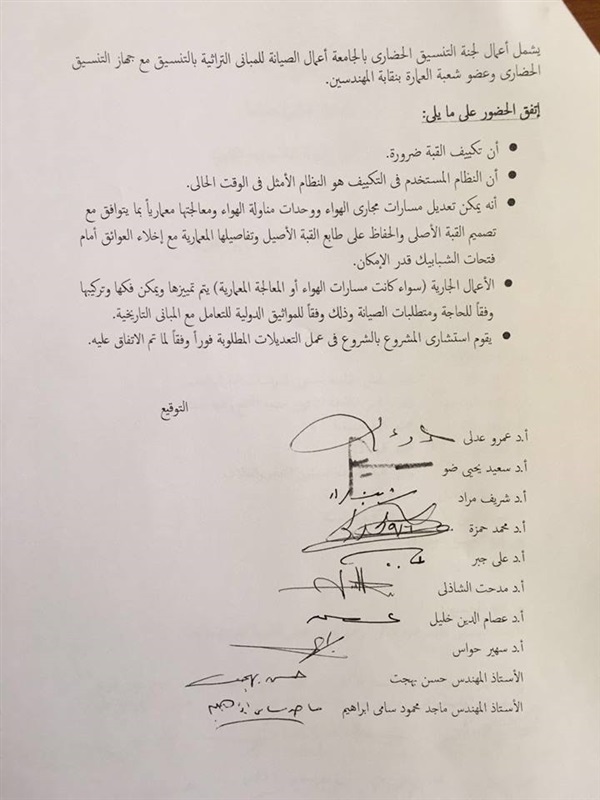 يشمل أعمال لجنة التنسيق الحضارى بالجامعة أعمال الصيانة للمبانى التراثية بالتنسيق مع جهاز التنسيق
الحضارى وعضو شعبة العمارة بنقابة المهندسين.
إتفق الحضور على ما يلى:
● أن تكييف القبة ضرورة.
● أن النظام المستخدم فى التكييف هو النظام الأمثل فى الوقت الحالى.
● أنه يمكن تعديل مسارات مجارى الهواء ووحدات مناولة الهواء ومعالجتها معمارياً بما يتوافق مع
تصميم القبة الأصلى والحفاظ على طابع القبة الأصيل وتفاصيلها المعمارية مع إخلاء العوائق أمام
فتحات الشبابيك قدر الإمكان.
● الأعمال الجارية (سواء كانت مسارات الهواء أو المعالجة المعمارية) يتم تمييزها ويمكن فكها وتركيبها
وفقاً للحاجة ومتطلبات الصيانة وذلك وفقاً للمواثيق الدولية للتعامل مع المبانى التاريخية.
● يقوم استشارى المشروع بالشروع فى عمل التعديلات المطلوبة فوراً وفقاً لما تم الاتفاق عليه.
التوقيع
أ.د عمرو عدلى
أ.د سعيد يحيى ضو
أ.د شريف مراد
أ.د محمد حمزة
أ.د على جبر
أ.د مدحت الشاذلى
أ.د عصام الدين خليل
أ.د سهير حواس
الأستاذ المهندس حسن بهجت حسن بهجت
الأستاذ المهندس ماجد محمود سامى ابراهيم ماجد سامى ابراهيم